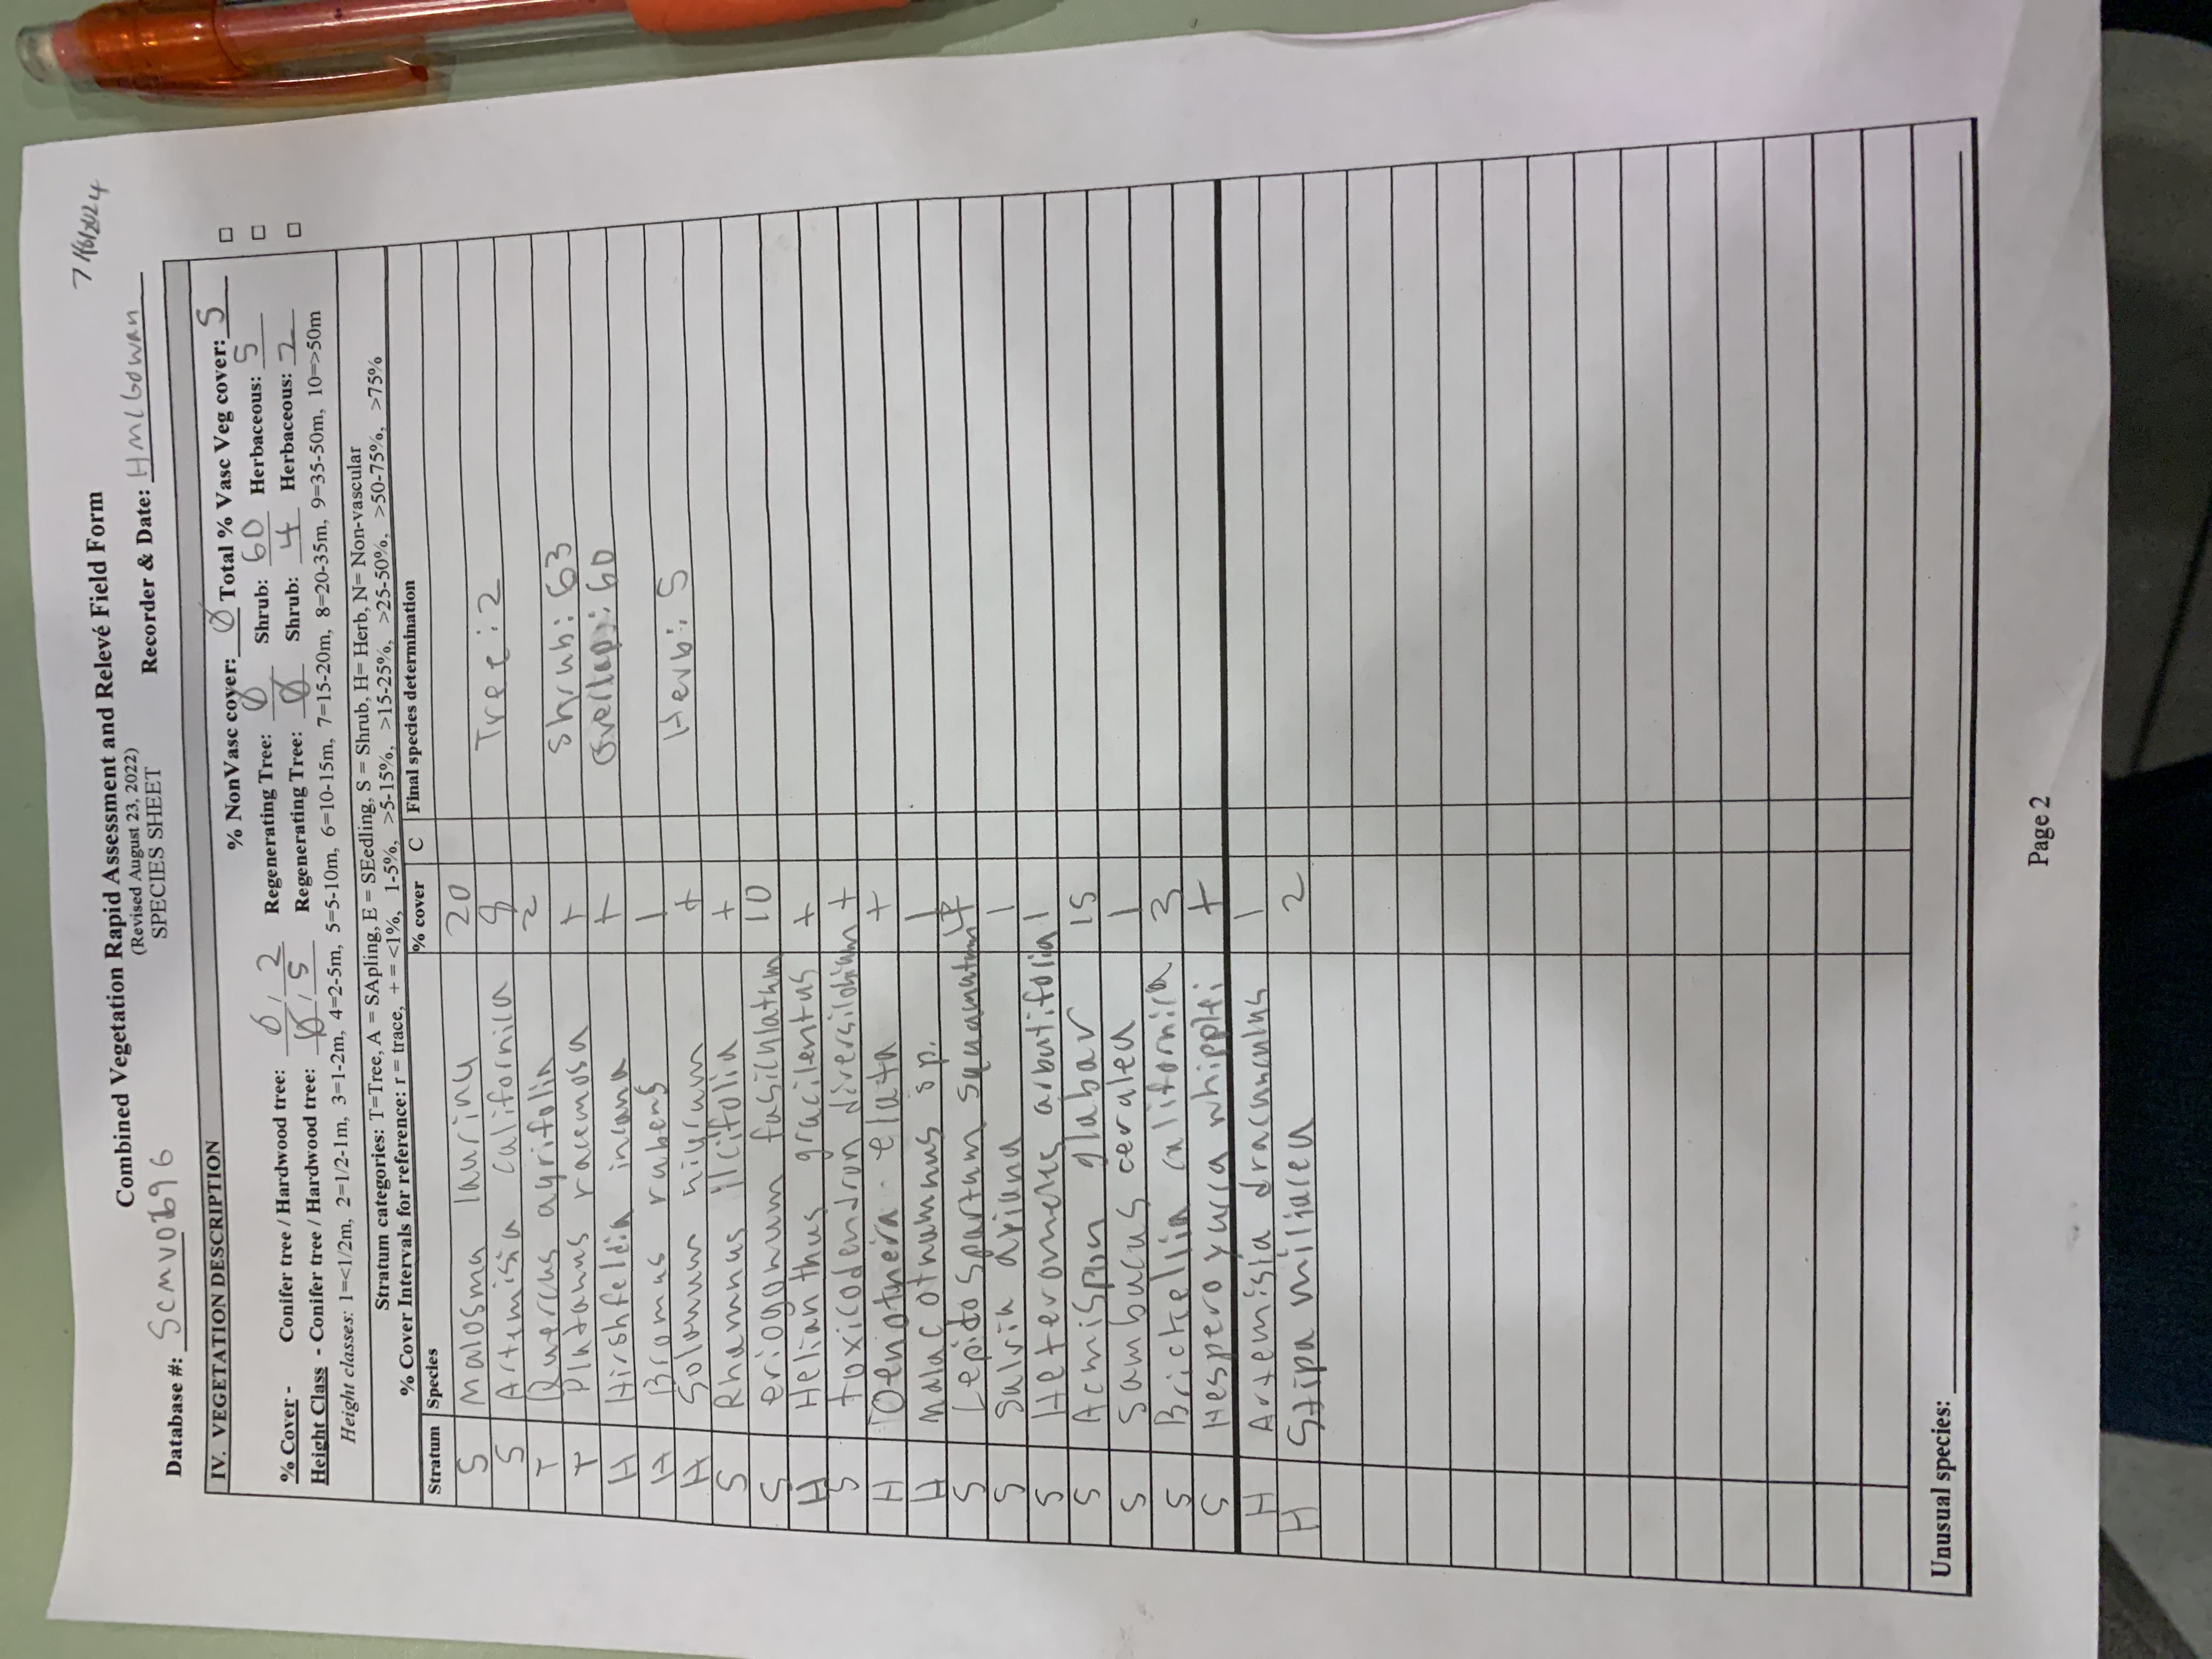 7/16/2024
Combined Vegetation Rapid Assessment and Relevé Field Form
(Revised August 23, 2022)
SPECIES SHEET
Database #: Recorder & Date: HMcGowan
IV. VEGETATION DESCRIPTION
% NonVasc cover: Ø Total % Vasc Veg cover: 5 □
% Cover - Conifer tree / Hardwood tree: Ø / 2 Regenerating Tree: Ø Shrub: 60 Herbaceous: 5 □
Height Class - Conifer tree / Hardwood tree: Ø / 5 Regenerating Tree: Ø Shrub: 4 Herbaceous: 2 □
Height classes: 1=<1/2m, 2=1/2-1m, 3=1-2m, 4=2-5m, 5=5-10m, 6=10-15m, 7=15-20m, 8=20-35m, 9=35-50m, 10=>50m
Stratum categories: T=Tree, A = SApling, E = SEedling, S = Shrub, H= Herb, N= Non-vascular
% Cover Intervals for reference: r = trace, + = <1%, 1-5%, >5-15%, >15-25%, >25-50%, >50-75%, >75%
Stratum Species % cover C Final species determination
S Malosma laurina 20
S Artemisia californica Tree: 2
T Quercus agrifolia 2
T Platanus racemosa + Shrub: 63
H Hirshfeldia incana + Overlap: 60
H Bromus rubens 1
H Solanum + Herb: 5
S Rhamnus ilcifolia +
S eriogonum fasiculathm 10
H Helianthus gracilentus +
S toxicodendron diversilobium +
H Oenothera elata +
H Malacothamnus sp. 1
S Lepidospartum squamatum
S Salvia apiana 1
S Heteromeles arbutifolia 1
S Acmispon glabar 15
S Sambucus cerulea 1
S Brickellia californica 3
S Hesperoyucca whipplei +
H Artemisia dracunculus 1
H Stipa miliacea 2
Unusual species:
Page 2